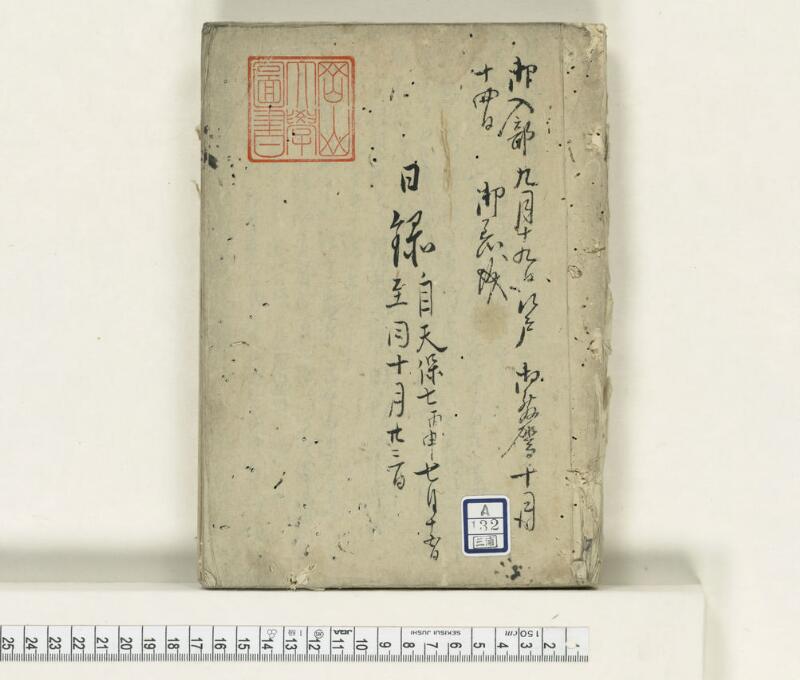 御入部九月十九日江戸御発駕十月
十四日 御着城
日録 自天保七丙申七月十五日
至同十月廿二日
岡山
大学
図書
A
132
三浦
25 24 23 22 21 20 19 18 17 16 15 14 13 12 11 10 9 8 7 6 5 4 3 2 1
SEKISUI JUSHI
cm
150